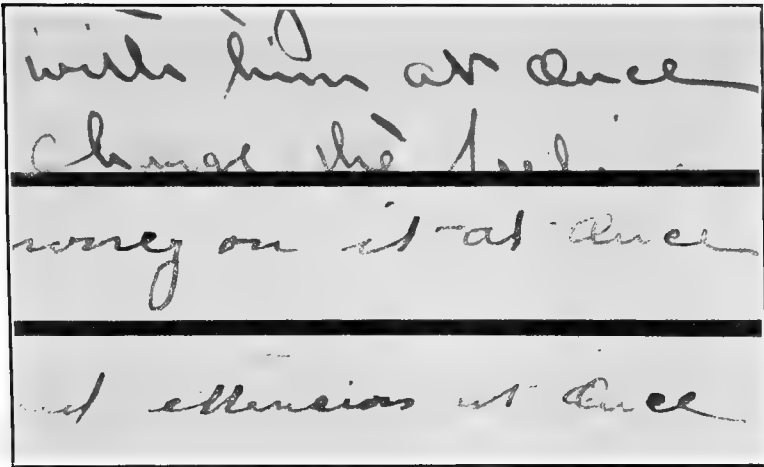 with him at Once
change the
money on it at Once
extension at Once